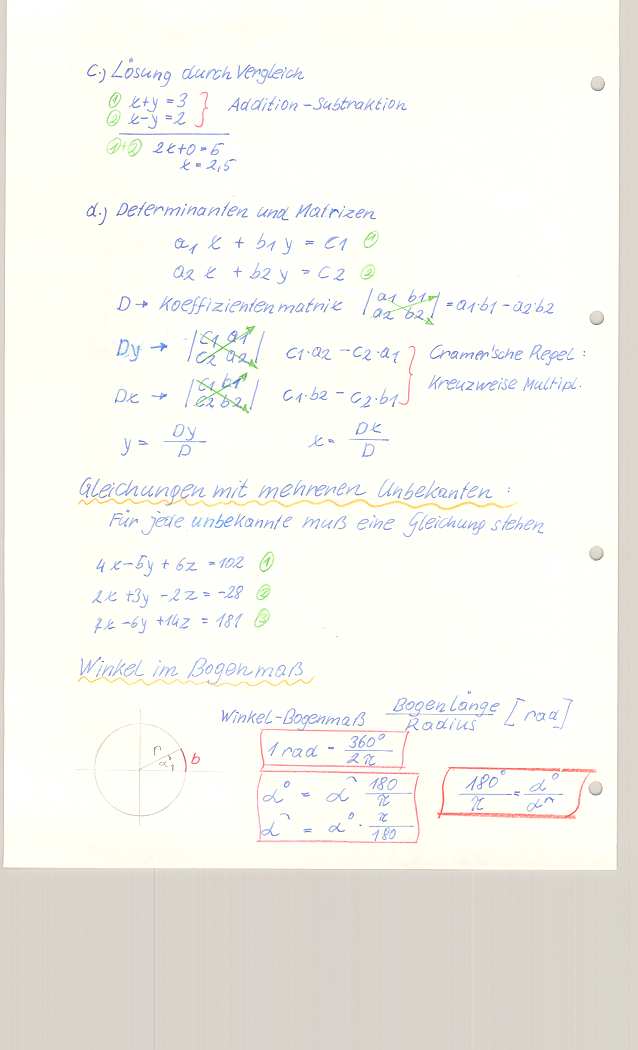 c.) Lösung durch Vergleich
① x+y = 3 } Addition-Subtraktion
② x-y = 2
①+② 2x+0 = 5
x = 2,5
d.) Determinanten und Matrizen
a1 x + b1 y = c1 ①
a2 x + b2 y = c2 ②
D → Koeffizientenmatrik |a1 b1| = a1·b1 - a2·b2
|a2 b2|
Dy → |c1 a1| c1·a2 - c2·a1 } Cramer'sche Regel:
|c2 a2|
Dx → |c1 b1| c1·b2 - c2·b1 Kreuzweise Multipl.
|c2 b2|
y = Dy/D x = Dx/D
Gleichungen mit mehreren Unbekanten:
Für jede unbekannte muß eine Gleichung stehen
4x-5y+6z = 102 ①
2x+3y-2z = -28 ②
7x-6y+14z = 181 ③
Winkel im Bogenmaß
Winkel-Bogenmaß Bogenlänge/Radius [rad]
r α 1 b
1 rad = 360°/2π
α° = α⌒ 180/π
α⌒ = α° · π/180
180°/π = α°/α⌒